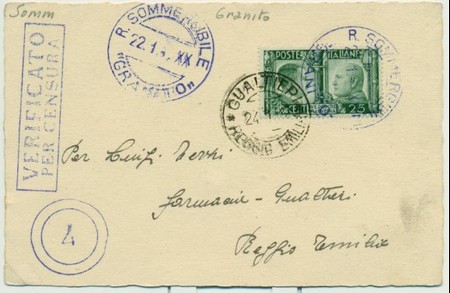 Somm
Granito
R. SOMMERGIBILE
22.1. XX
"GRANITO"
R. SOMMERGIBILE
POSTE ITALIANE
CENT. 25
GUALTIERI
24
* REGGIO EMILIA
VERIFICATO
PER CENSURA
4
Per Luigi
Farmacia - Gualtieri
Reggio Emilia